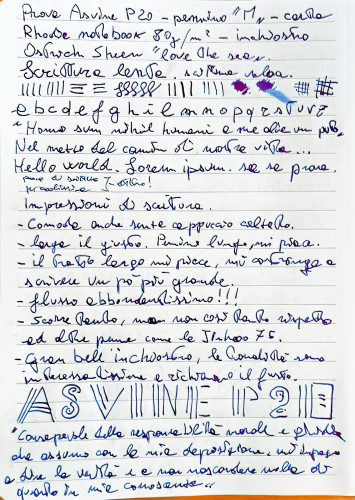 Prova Asvine P20 - pennino "M" - carta
Rhodia notebook 80g/m² - inchiostro
Ostrich Sheen "love the sea"
Scrittura lenta. scrittura veloce.
a b c d e f g h i l m n o p q r s t u v z
"Homo sum nihil humani a me alienum puto
Nel mezzo del cammin di nostra vita...
Hello world. Lorem ipsum. sa sa prova.
prova di scrittura
Impressioni di scrittura.
- Comoda anche senza cappuccio calzato.
- larga il giusto. Pennino lungo, mi piace.
- il tratto largo mi piace, mi costringe a
scrivere un po' più grande.
- flusso abbondantissimo!!!
- Scorre tanto, ma non così tanto rispetto
ad altre penne come la Jinhao 75.
- Gran bell'inchiostro, le tonalità sono
interessantissime e richiamano il fusto.
ASVINE P20
"Consapevole della responsabilità morale e giuridica
che assumo con la mia deposizione, mi impegno
a dire la verità e a non nascondere nulla di
quanto di mia conoscenza"